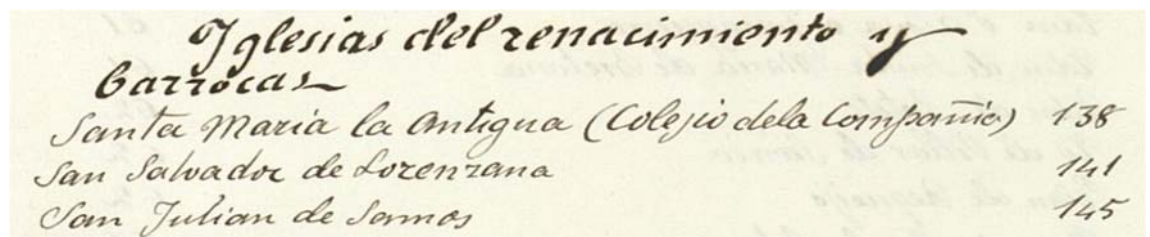 Iglesias del renacimiento y
barrocas
Santa Maria la Antigua (Colejio dela Compañia) 138
San Salvador de Lorenzana 141
San Julian de Samos 145